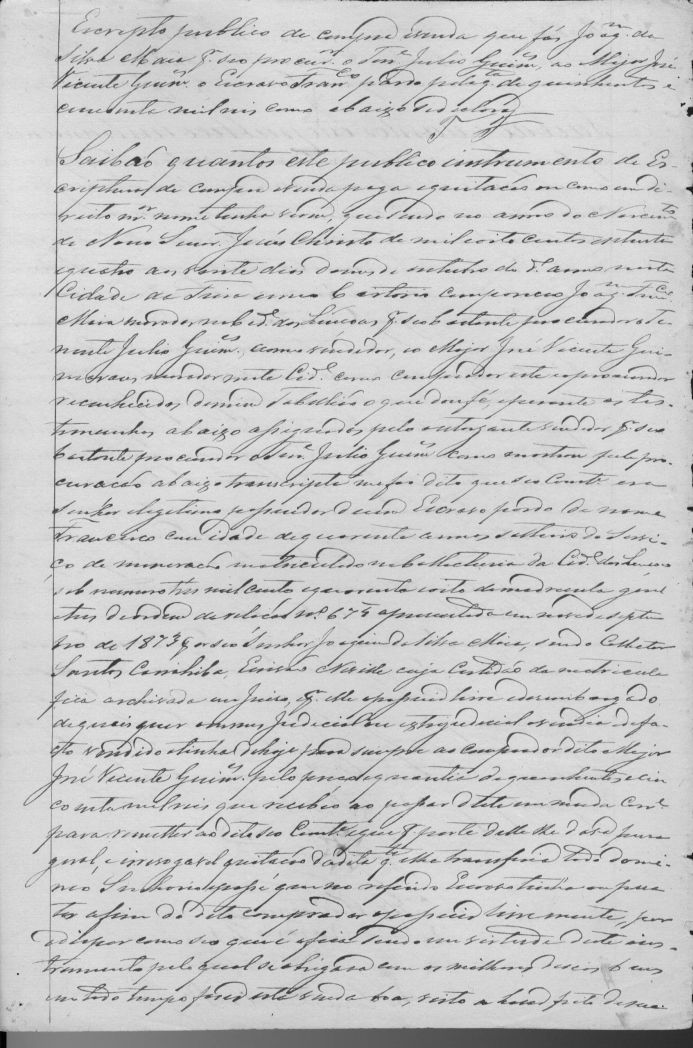 Escripto publico de compra e venda que fás Joaqm da
Silva Maia pr seo procurr o Tene Julio Guims, ao Major José
Vicente Guims o Escravo Franco pardo pela qta de quinhentos e
cincoenta mil reis como abaixo se declara
Saibão quantos este publico instrumento de Es-
criptura de compra e venda paga e quitação ou como em di-
reito mr nome tenha virem, que sendo no anno do Nascimto
de Nosso Senr Jesus Christo de mil oito centos e setenta
e quatro aos vinte dias do mes de outubro do do anno nesta
Cidade da Feira em meo Cartorio compareceo Joaqm
Maia morador na Cide dos Lençoes pr seo bastante procurador o Te-
nente Julio Guims, como vendedor, e o Major José Vicente Gui-
marães morador nesta Cide como comprador este e o procurador
reconhecidos de mim Tabellião o que dou fé, e perante as tes-
temunhas abaixo assignadas pelo outorgante vendedor pr seo
bastante procurador o Tene Julio Guims como mostrou pela pro-
curação abaixo transcripta me foi dito que seo Conste era
senhor e legitimo possuidor de um Escravo pardo de nome
Francisco com idade de quarenta annos solteiro do Servi-
ço de mineração matriculado na Collectoria da Cide dos Lençoes
sob numero tres mil cento e quarenta e oito da matricula geral
e tres de ordem da relação no 674 apresentada em nove de septem
bro de 1872 por seo Senhor Joaquim da Silva Maia, sendo Collector
Santos Escrivão cuja Certidão da matricula
fica archivada em Juizo, qe elle possuia livre e desembargado
de quaes quer onnus Judicial ou extrajudicial e vendia e de fa-
cto vendido tinha de hoje para sempre ao comprador dito Major
José Vicente Guims pelo preço e quantia de quinhentos e cin
coenta mil reis que recebeo ao passar deste em moeda corre
para remetter ao dito seo Conste e que pr parte delle lhe dava plena
geral, e irrevogavel quitação da dita qta e lhe transferia todo domi-
nio Senhorio e posse que no referido Escravo tinha ou possa
ter afim do dito comprador o possuir livremente, por
e dispor como seo que é e fica sendo em virtude deste ins-
trumento pelo qual se obrigava com os milhores de seos bens
em todo tempo fazer esta venda boa,